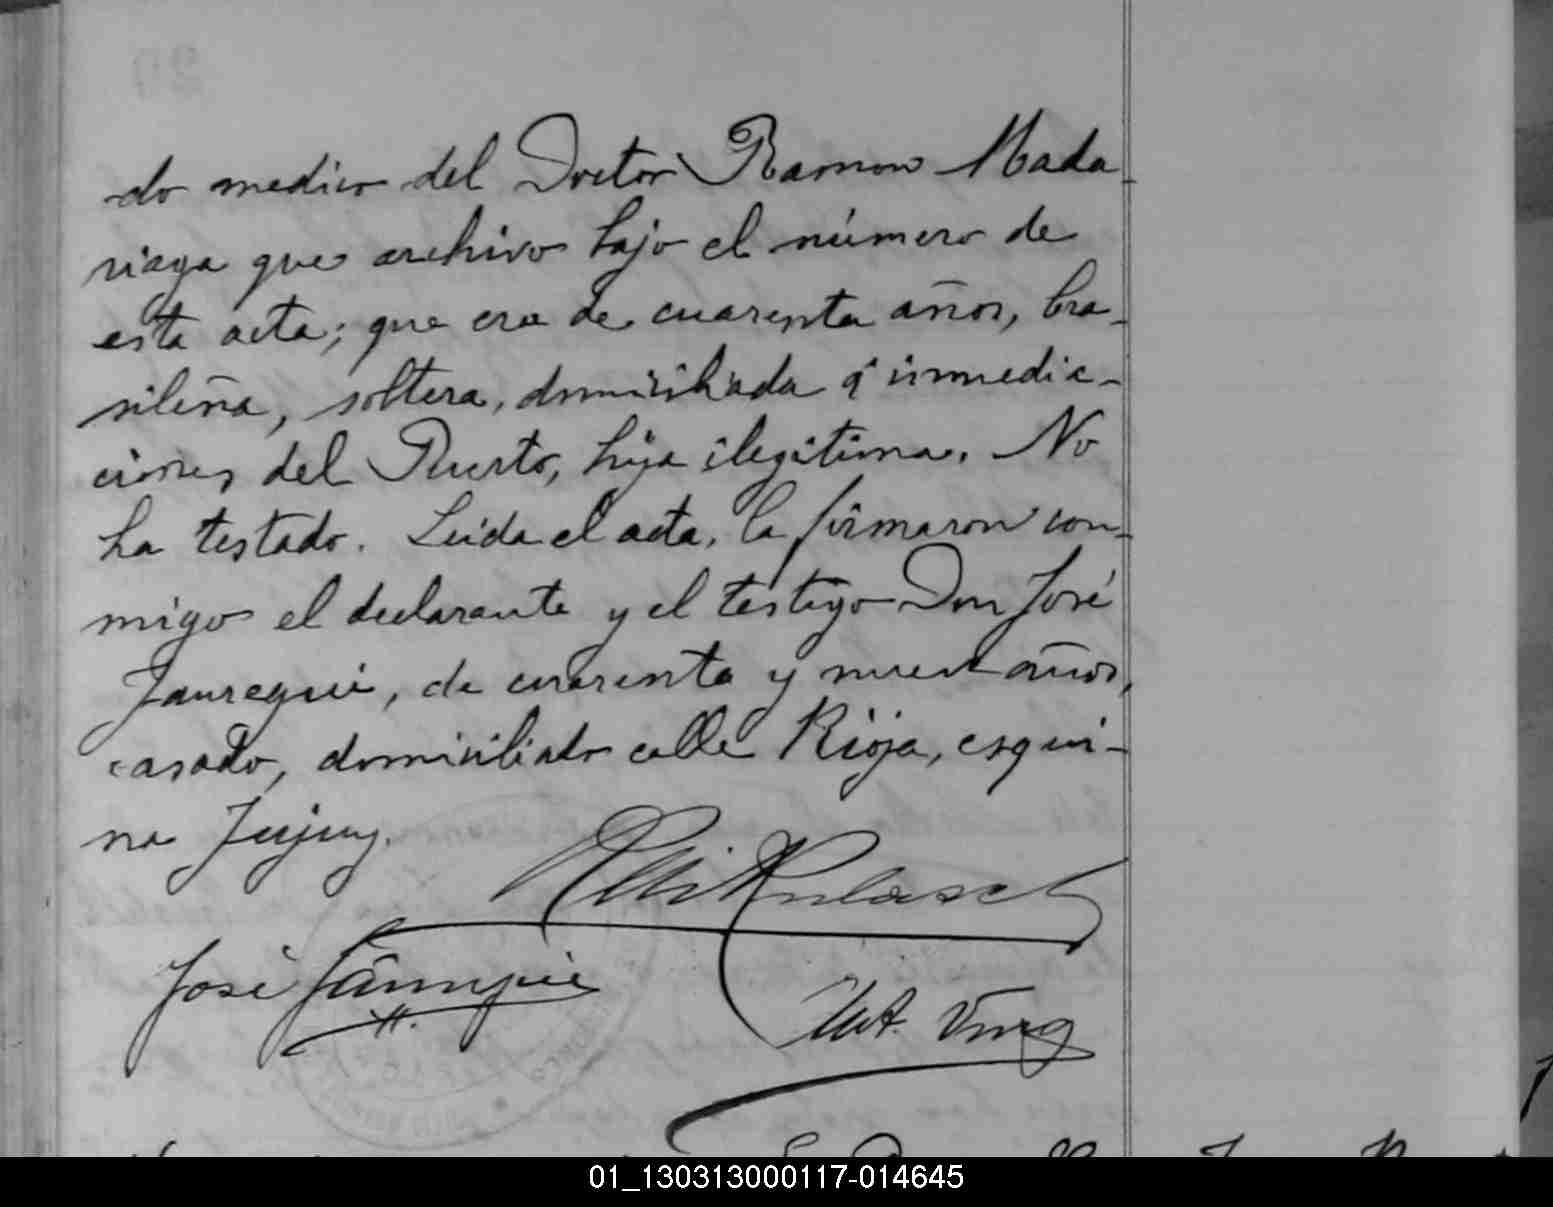 do medico del Doctor Ramon Mada
riaga que archivo bajo el número de
esta acta; que era de cuarenta años, bra-
sileña, soltera, domiciliada é inmedia-
ciones del Puerto, hija ilegitima. No
ha testado. Leida el acta, la firmaron con-
migo el declarante y el testigo Don José
Jauregui, de cuarenta y nueve años,
casado, domiciliado calle Rioja, esqui-
na Jujuy.
José Jauregui
01_130313000117-014645